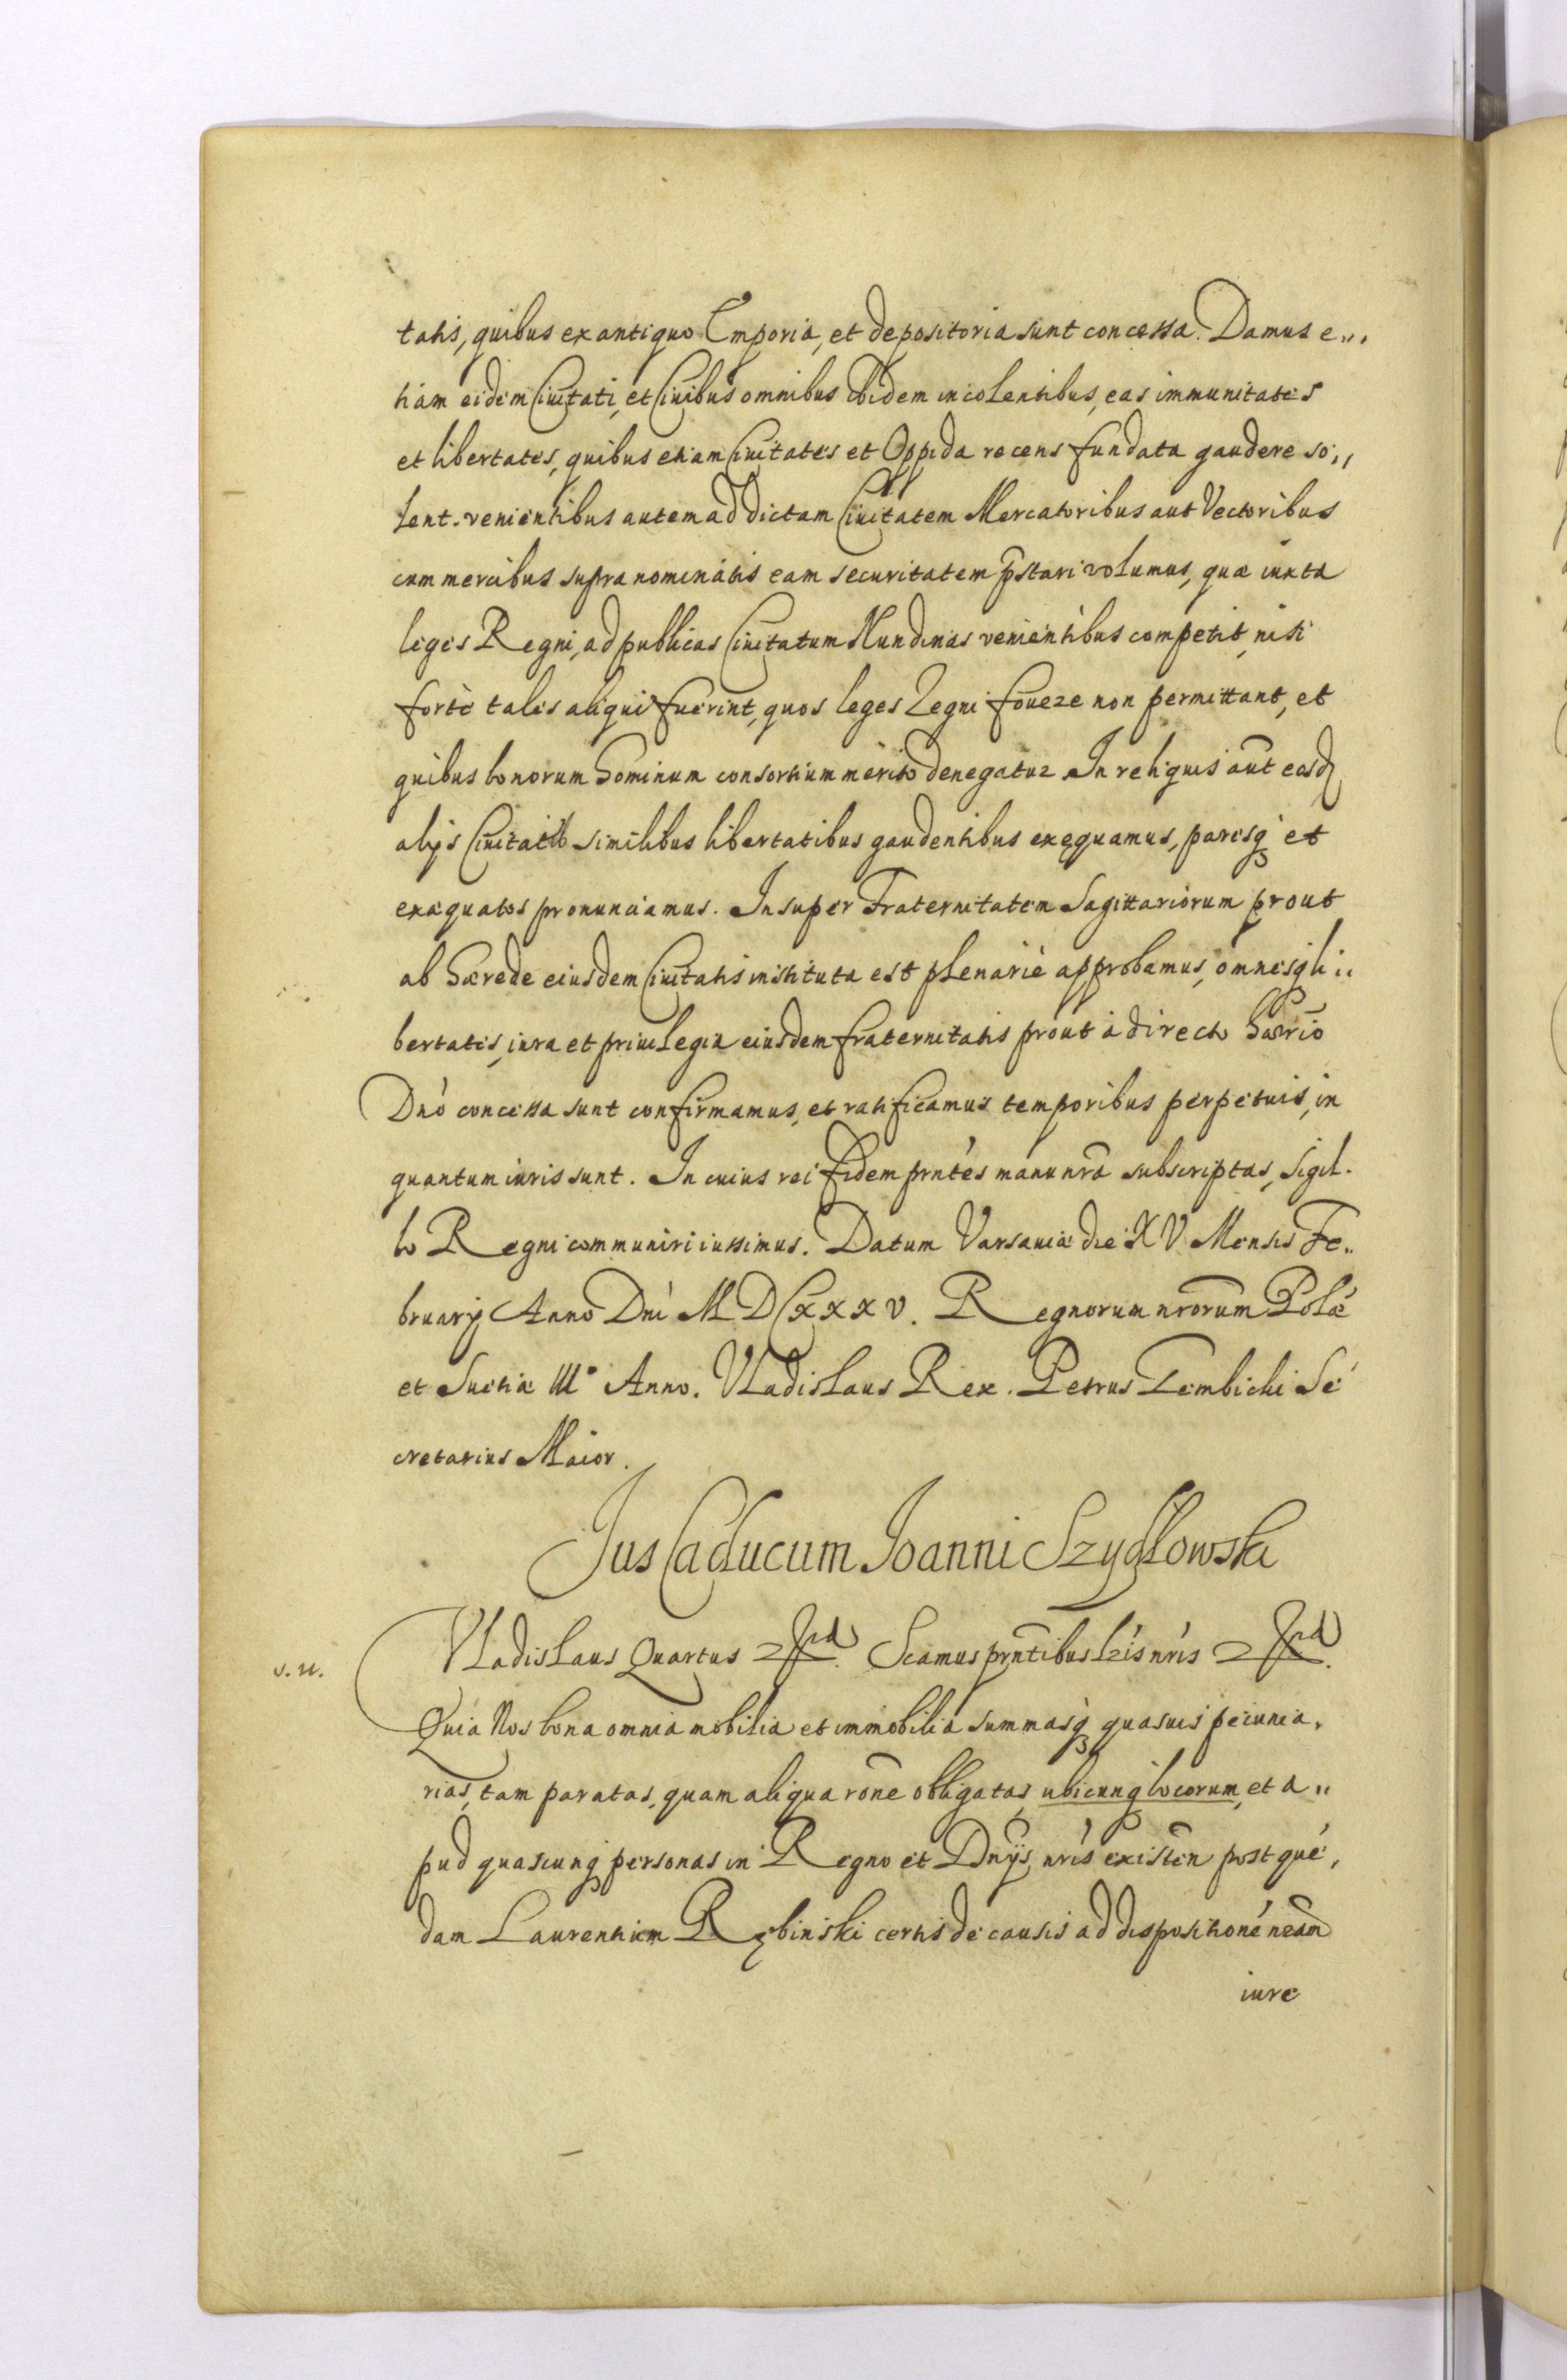 tatis, quibus ex antiquo Emporia, et depositoria sunt concessa. Damus e„
tiam eidem Civitati, et Civibus omnibus ibidem incolentibus, eas immunitates
et libertates, quibus etiam Civitates et Oppida recens fundata gaudere so„
lent. venientibus autem ad dictam Civitatem Mercatoribus aut Vectoribus
cum mercibus supra nominatis eam securitatem p̃stari volumus, quæ iuxta
leges Regni, ad publicas Civitatum Nundinas venientibus competit, nisi
fortè tales aliqui fuerint, quos leges Regni fovere non permittant, et
quibus bonorum hominum consortium merito denegatur In reliquis aũt easd
alijs Civitatib similibus libertatibus gaudentibus exęquamus, paresq et
exæquatos pronunciamus. Insuper Fraternitatem Sagittariorum prout
ab hærede eiusdem Civitatis instituta est plenariè approbamus, omnesq li„
bertates, iura et privilegia eiusdem fraternitatis prout à directo hærio
Dnó concessa sunt confirmamus, et ratificamus temporibus perpetuis, in
quantum iuris sunt. In cuius rei fidem prntes manu nrã subscriptas, sigil.
lo Regni communiri iussimus. Datum Varsaviæ die XV Mensis Fe„
bruarij Anno Dni MDCXXXV. Regnorum nrorum Polæ
et Suetiæ III° Anno. Vladislaus Rex. Petrus Gembicki Se
cretarius Maior.
Jus Caducum Joanni Szydłowski
v. n.
Vladislaus Quartus Scamus prntibus lris nris
Quia Nos bona omnia mobilia et immobilia summasq quasvis pecunia,
rias, tam paratas, quam aliqua rone obligatas, ubicunq locorum, et a„
pud quascunq personas in Regno et Dnijs nris existen post que,
dam Laurentium Rębinski certis de causis ad dispositioné nrãm
iure